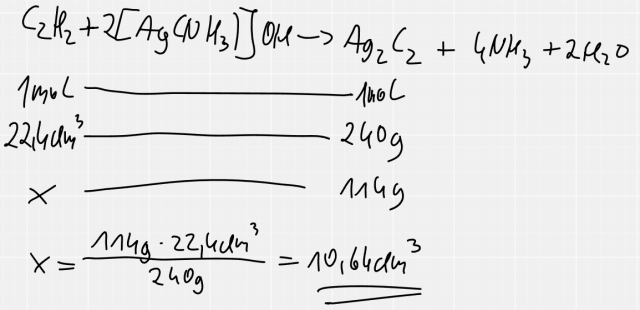 C₂H₂ + 2[Ag(NH₃)]OH → Ag₂C₂ + 4NH₃ + 2H₂O
1mol — 1mol
22,4dm³ — 240g
x — 114g
x = 114g · 22,4dm³ / 240g = 10,64dm³